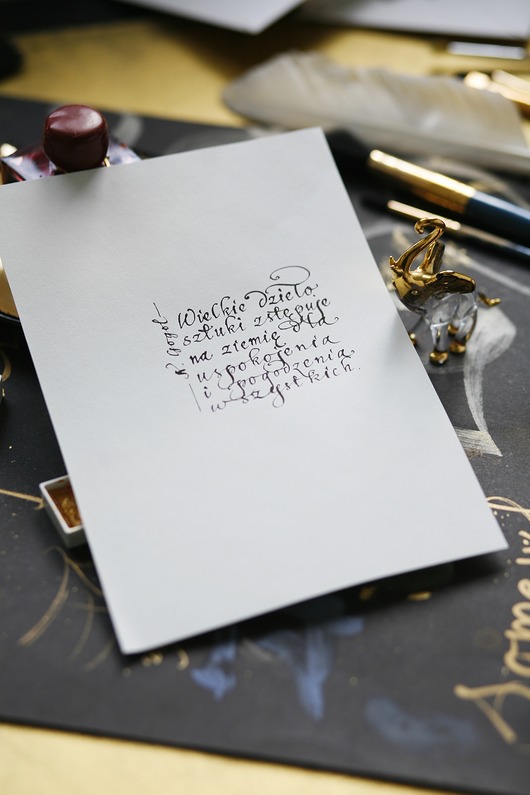 Wielkie dzieło
sztuki zstępuje
na ziemię dla
uspokojenia
i pogodzenia
wszystkich.
Gogol
Some